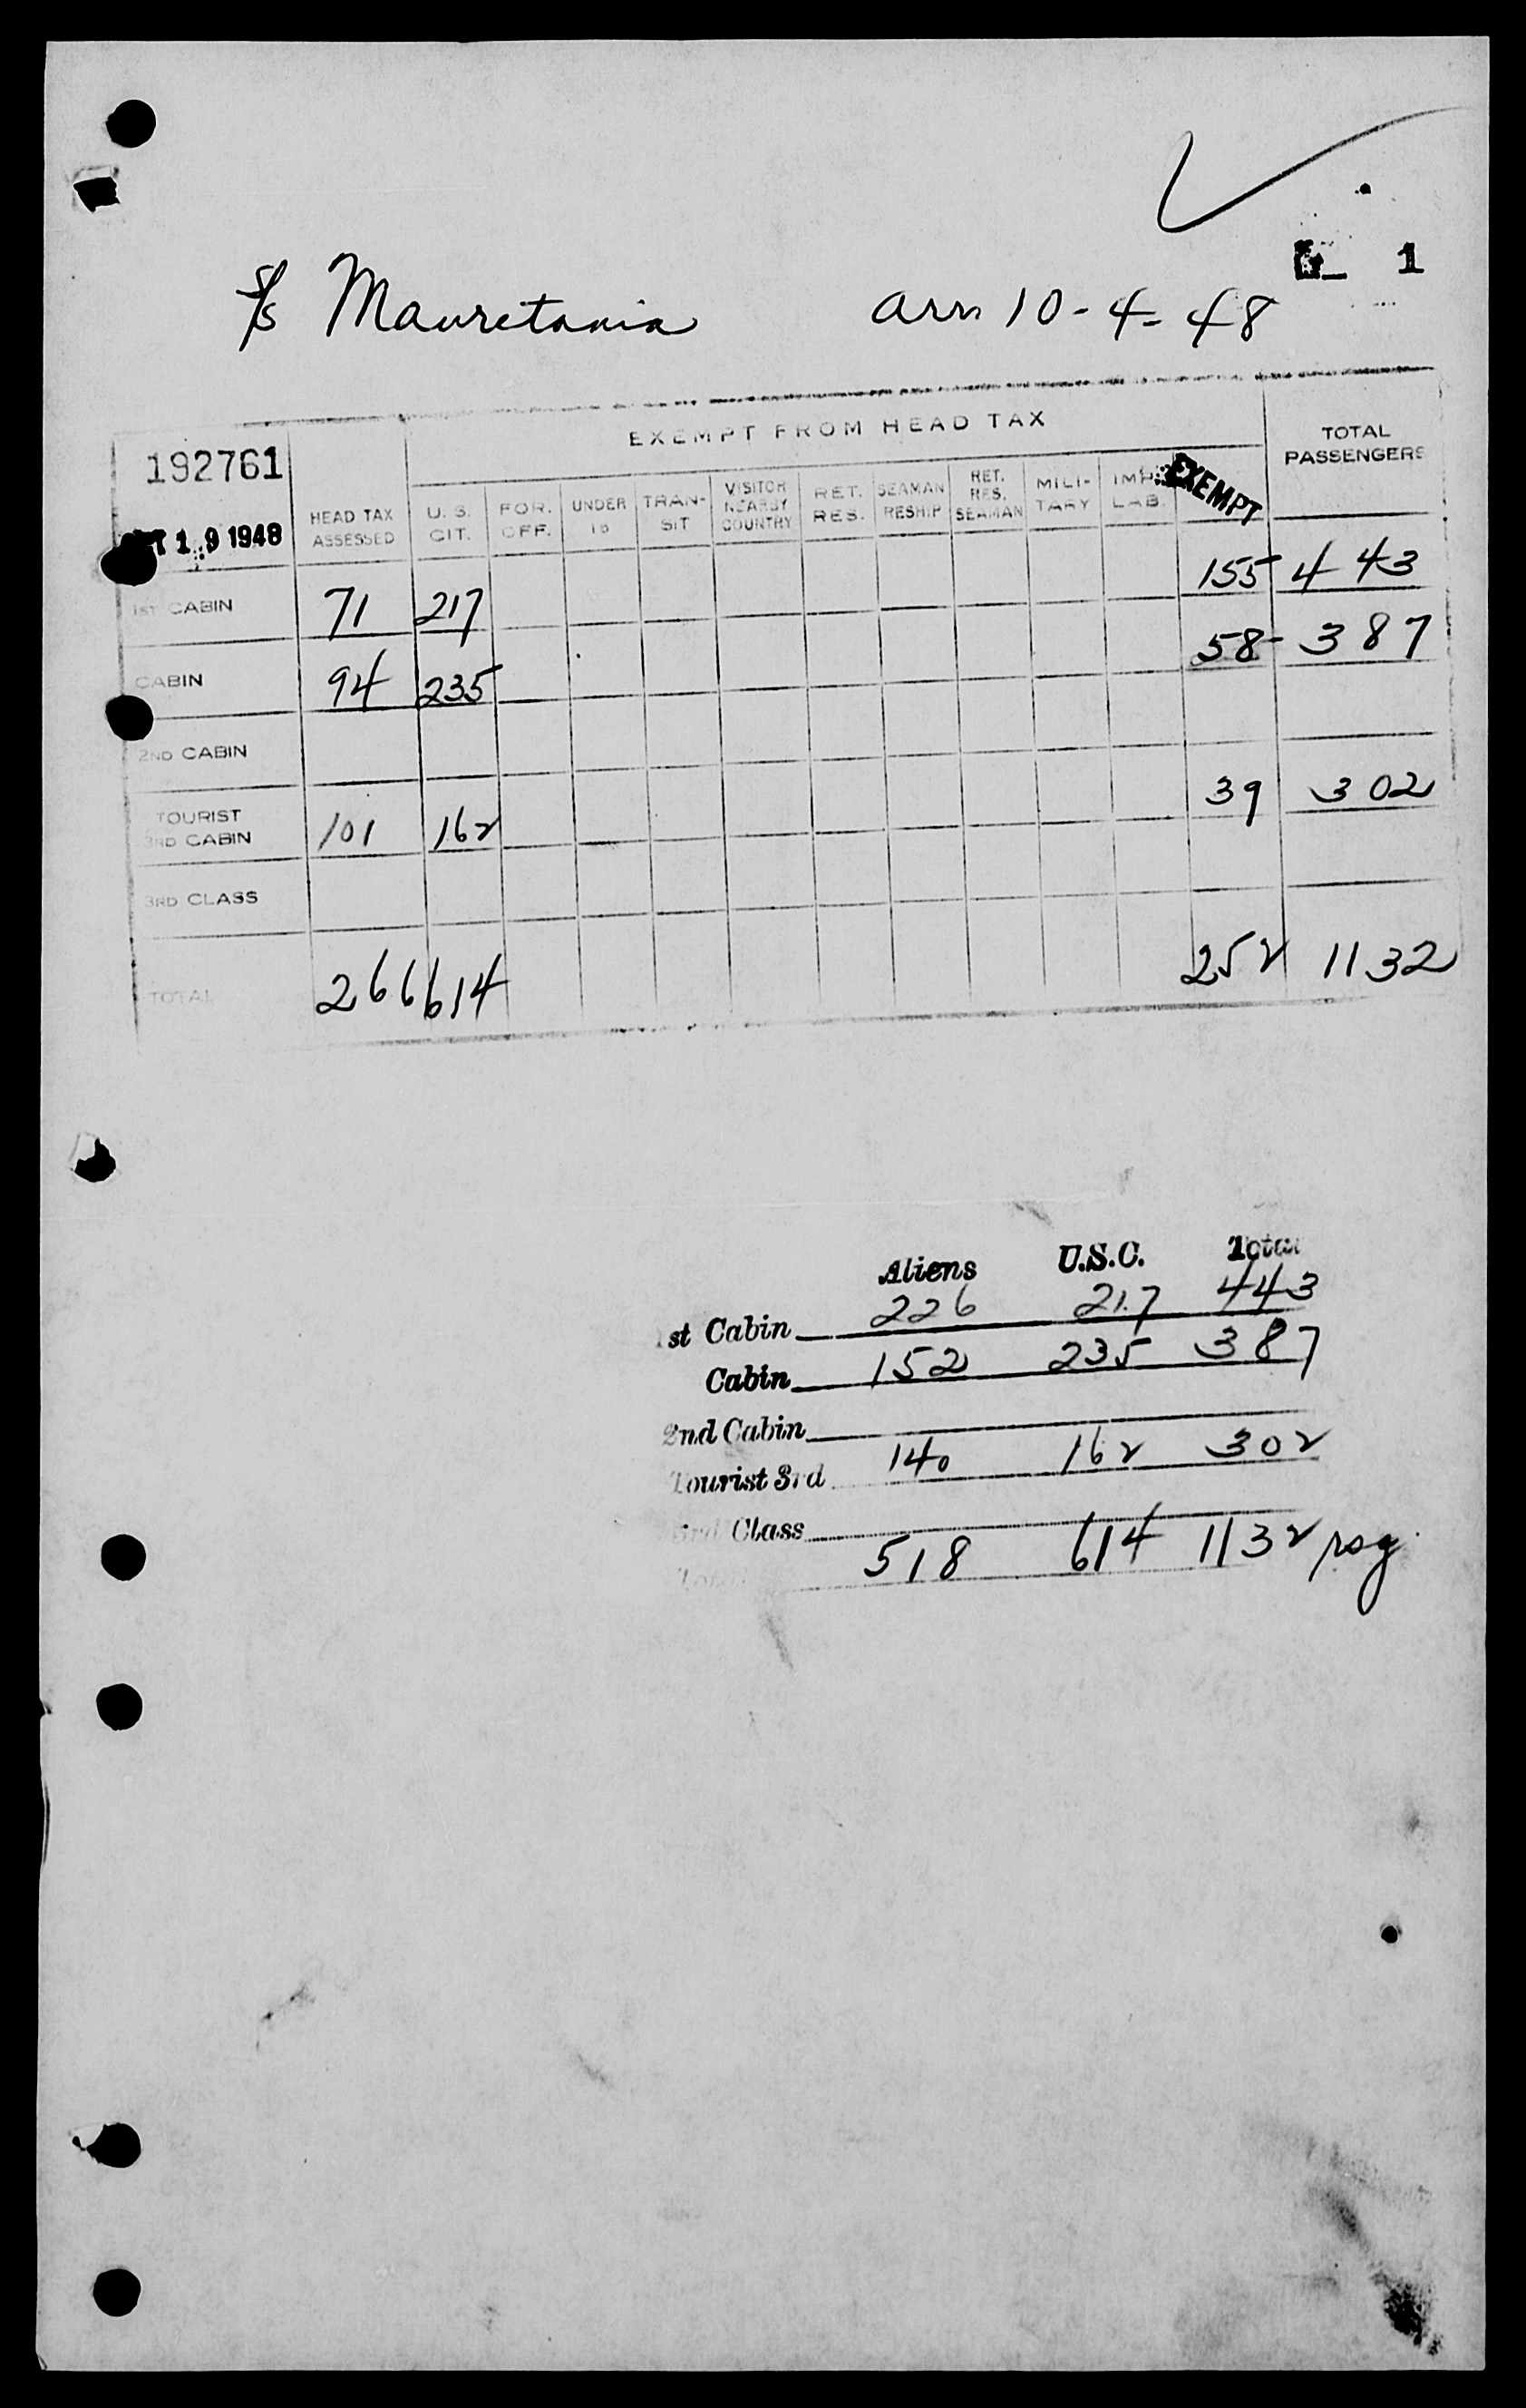 1
S/S Mauretania arr 10-4-48
192761
EXEMPT FROM HEAD TAX
TOTAL PASSENGERS
19 1948
HEAD TAX ASSESSED U. S. CIT. FOR. OFF. UNDER 16 TRAN-SIT VISITOR NEARBY COUNTRY RET. RES. SEAMAN RESHIP RET. RES. SEAMAN MILI-TARY IMP. LAB. EXEMPT
1ST CABIN 71 217 155 443
CABIN 94 235 58 387
2ND CABIN
TOURIST 3RD CABIN 101 162 39 302
3RD CLASS
TOTAL 266 614 252 1132
Aliens U.S.C. Total
1st Cabin 226 217 443
Cabin 152 235 387
2nd Cabin
Tourist 3rd 140 162 302
3rd Class
Total 518 614 1132